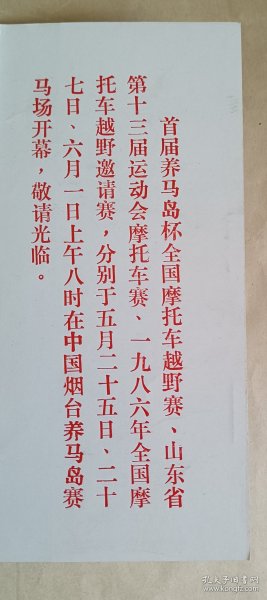 首届养马岛杯全国摩托车越野赛、山东省
第十三届运动会摩托车赛、一九八六年全国摩
托车越野邀请赛，分别于五月二十五日、二十
七日、六月一日上午八时在中国烟台养马岛赛
马场开幕，敬请光临。
孔夫子旧书网